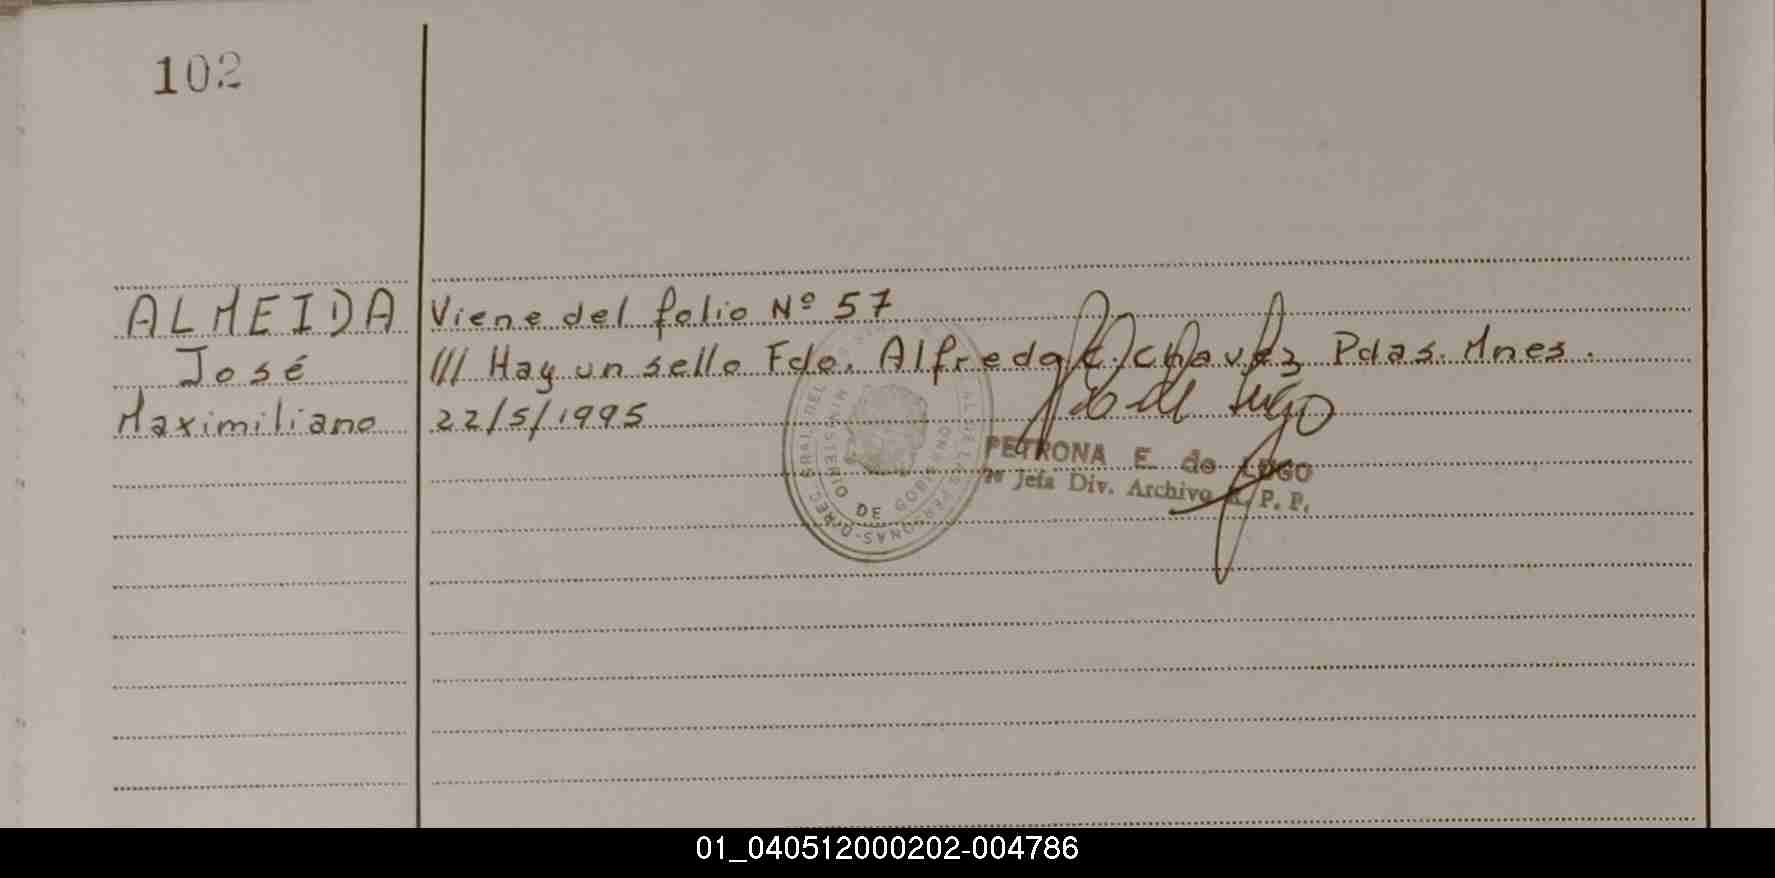 102
ALMEIDA Viene del folio Nº 57
José /// Hay un sello Fdo. Alfredo C. Chavez Pdas. Mnes.
Maximiliano 22/5/1995
PETRONA E. de LUGO
Jefa Div. Archivo R. P. P.
MINISTERIO DE GOBIERNO
01_040512000202-004786